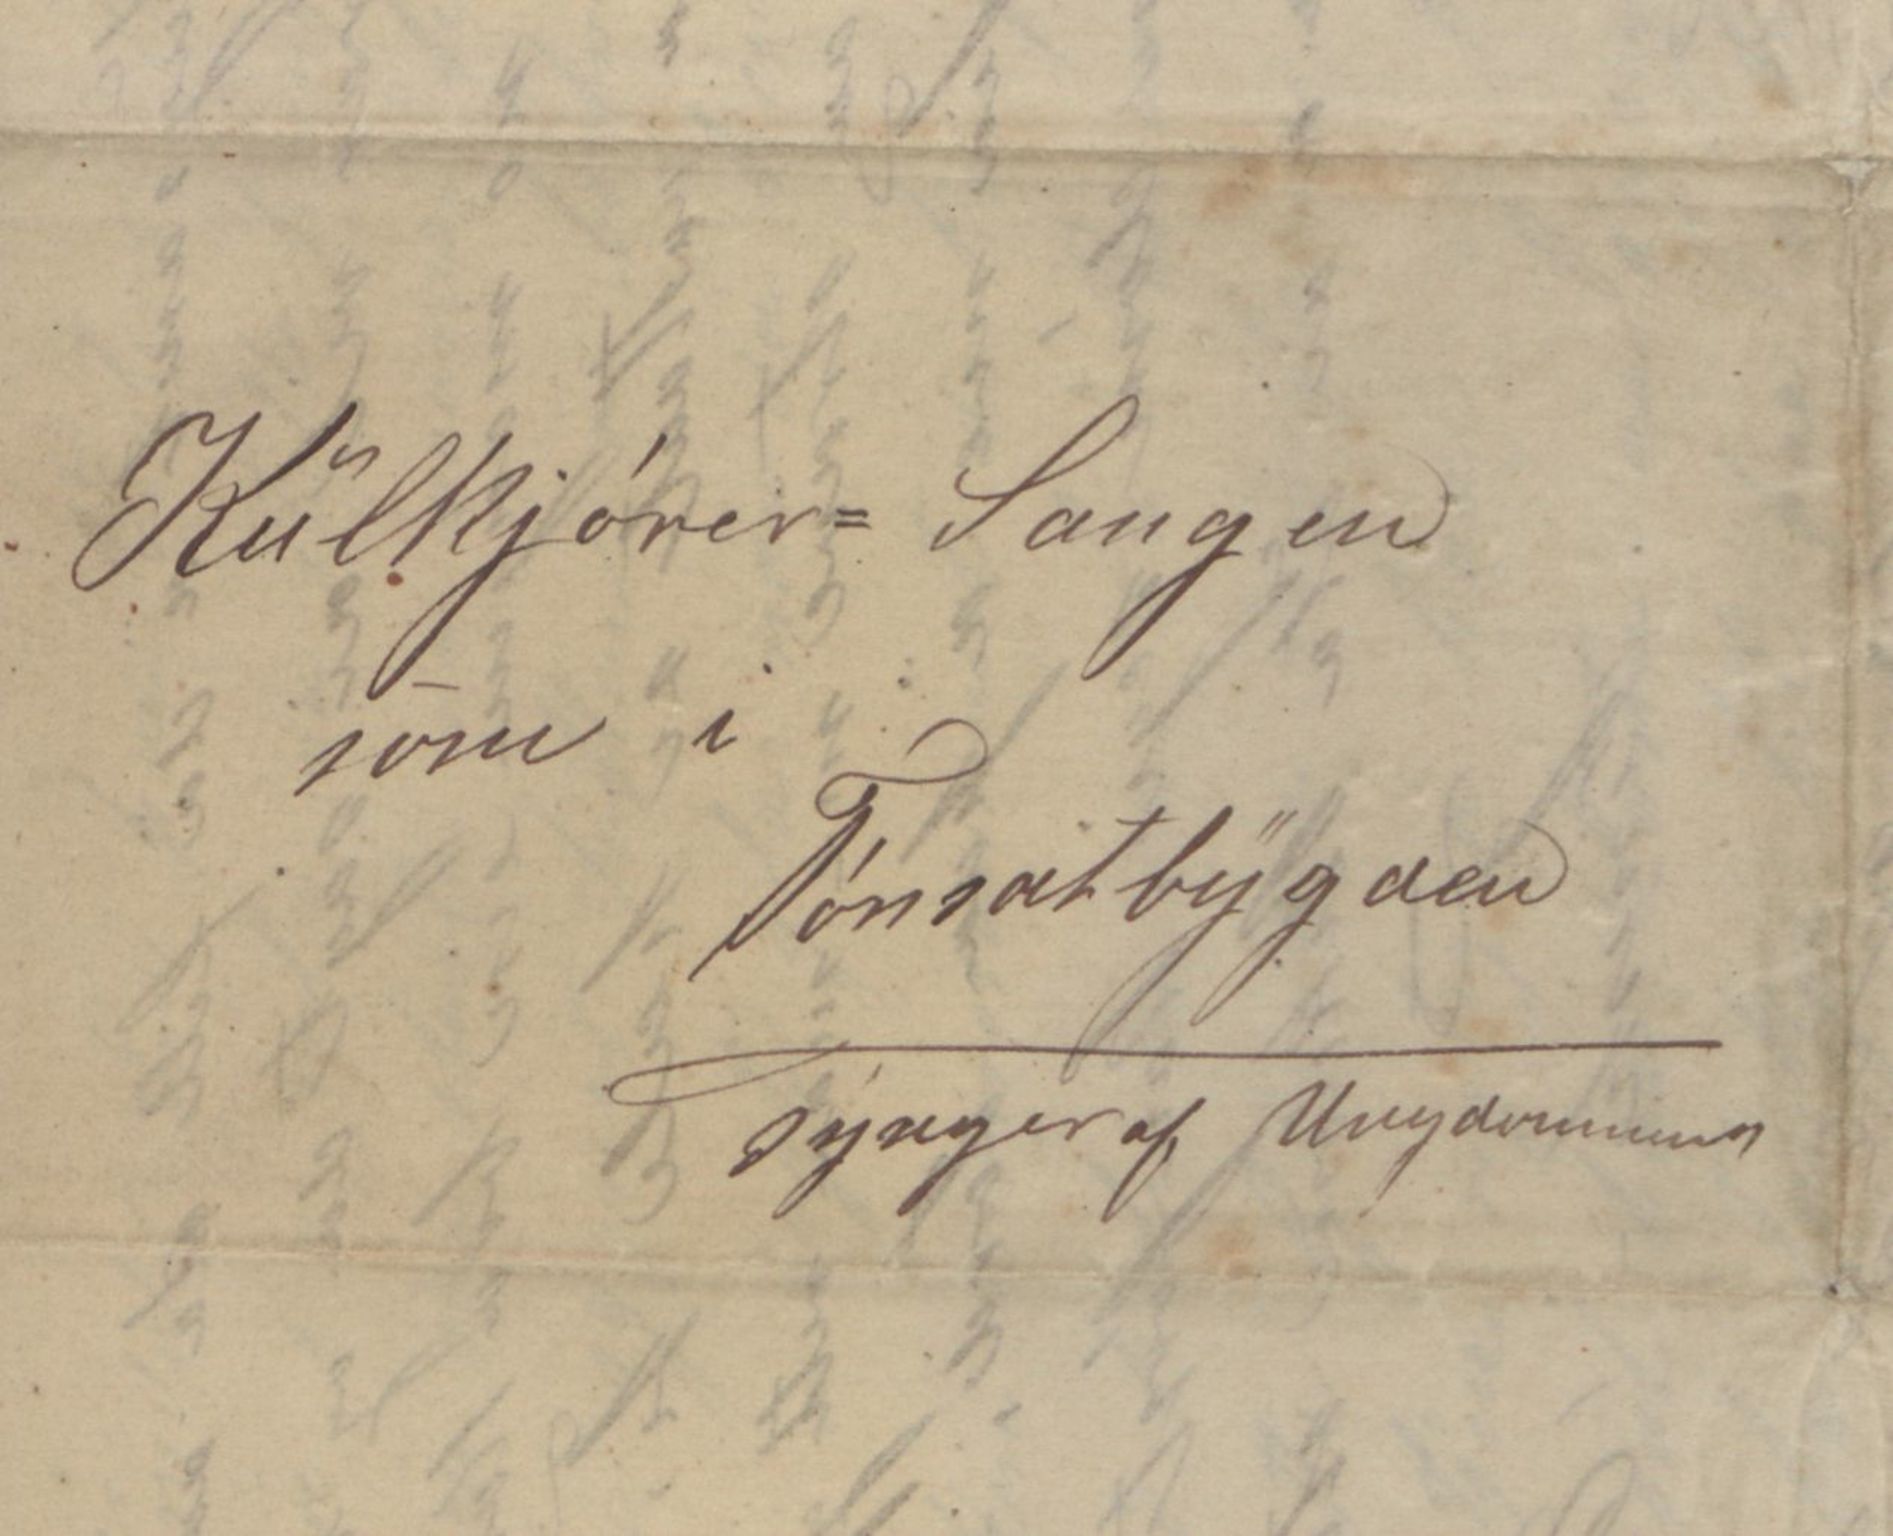 Kŭlkjórer= Sangen
som̄ i
Tónsætbÿgden
sÿnger af Ungdommen